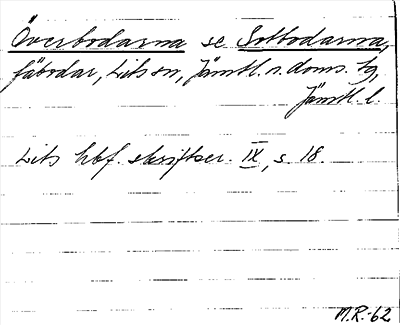 Överbodarna se Solbodarna,
fäbodar, Lits sn, Jämtl. n. doms. tg,
Jämtl. l.
Lits hbf. skriftser. IX, s. 18.
M.R. -62